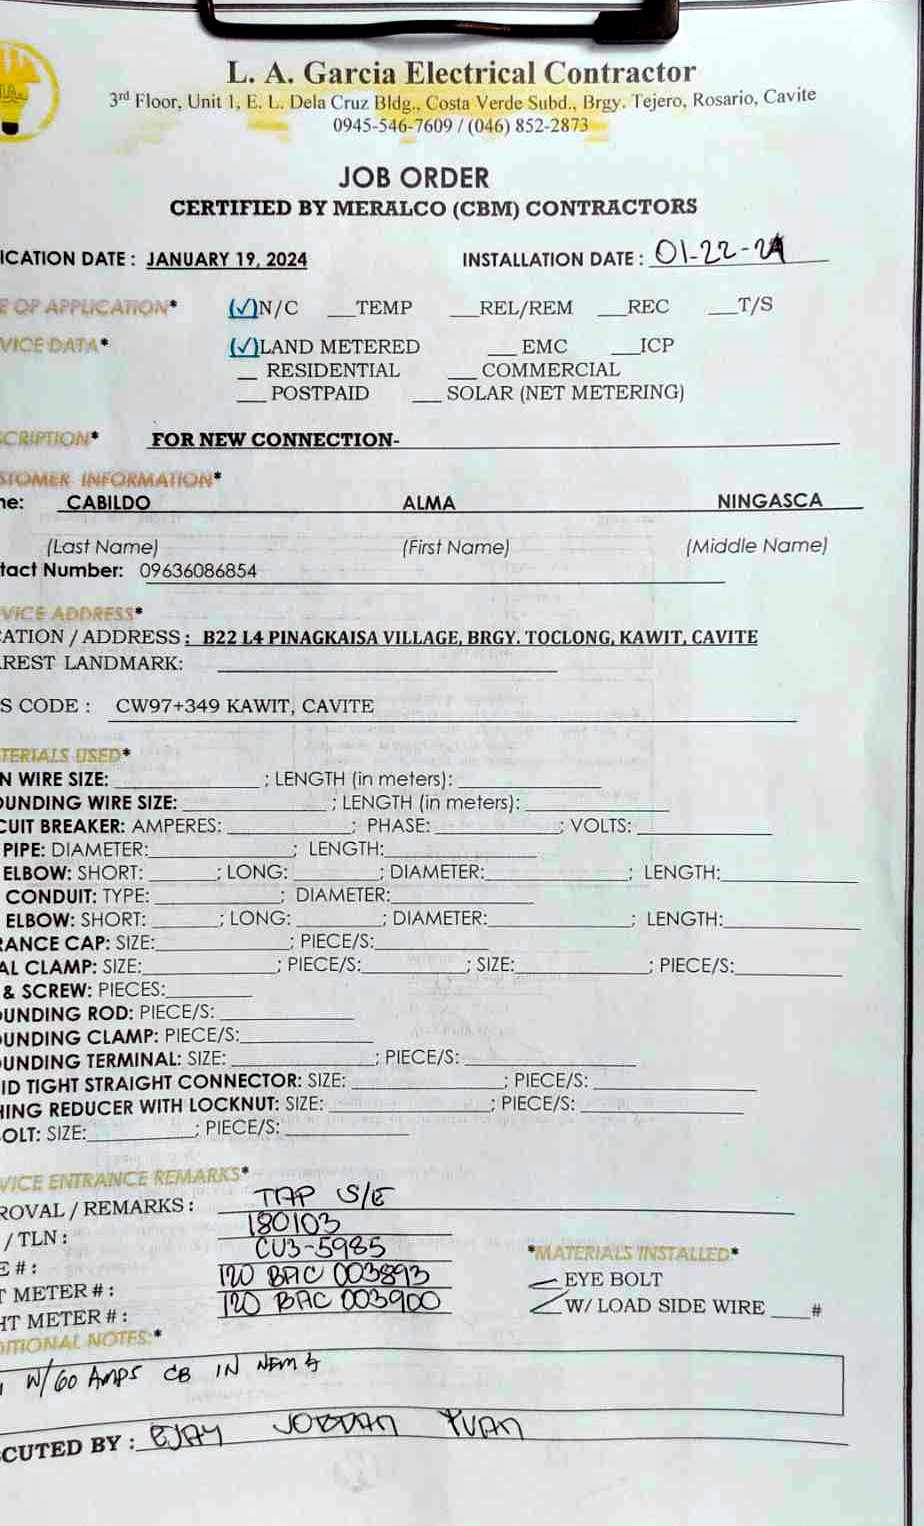 L. A. Garcia Electrical Contractor
3rd Floor, Unit 1, E. L. Dela Cruz Bldg., Costa Verde Subd., Brgy. Tejero, Rosario, Cavite
0945-546-7609 / (046) 852-2873
JOB ORDER
CERTIFIED BY MERALCO (CBM) CONTRACTORS
ICATION DATE : JANUARY 19, 2024 INSTALLATION DATE : 01-22-24
E OF APPLICATION* (✓)N/C __TEMP __REL/REM __REC __T/S
VICE DATA* (✓)LAND METERED __ EMC __ICP
__ RESIDENTIAL __ COMMERCIAL
__ POSTPAID __ SOLAR (NET METERING)
CRIPTION* FOR NEW CONNECTION-
STOMER INFORMATION*
me: CABILDO ALMA NINGASCA
(Last Name) (First Name) (Middle Name)
tact Number: 09636086854
VICE ADDRESS*
CATION / ADDRESS : B22 L4 PINAGKAISA VILLAGE, BRGY. TOCLONG, KAWIT, CAVITE
AREST LANDMARK:
S CODE : CW97+349 KAWIT, CAVITE
TERIALS USED*
N WIRE SIZE: ; LENGTH (in meters):
OUNDING WIRE SIZE: ; LENGTH (in meters):
CUIT BREAKER: AMPERES: ; PHASE: ; VOLTS:
PIPE: DIAMETER: ; LENGTH:
ELBOW: SHORT: ; LONG: ; DIAMETER: ; LENGTH:
CONDUIT: TYPE: ; DIAMETER:
ELBOW: SHORT: ; LONG: ; DIAMETER: ; LENGTH:
RANCE CAP: SIZE: ; PIECE/S:
AL CLAMP: SIZE: ; PIECE/S: ; SIZE: ; PIECE/S:
& SCREW: PIECES:
OUNDING ROD: PIECE/S:
OUNDING CLAMP: PIECE/S:
OUNDING TERMINAL: SIZE: ; PIECE/S:
ID TIGHT STRAIGHT CONNECTOR: SIZE: ; PIECE/S:
HING REDUCER WITH LOCKNUT: SIZE: ; PIECE/S:
OLT: SIZE: ; PIECE/S:
VICE ENTRANCE REMARKS*
ROVAL / REMARKS : TAP S/E
/ TLN : 180103
E # : CU3-5985 *MATERIALS INSTALLED*
T METER # : 120 BAC 003893 EYE BOLT
HT METER # : 120 BAC 003900 W/ LOAD SIDE WIRE ___#
DITIONAL NOTES:*
W/ 60 AMPS CB IN NEMA
CUTED BY : EJAY JORDAN YUAN